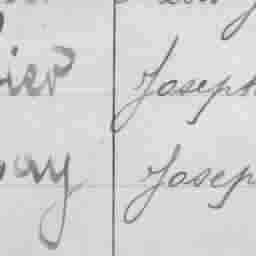 ier Joseph
ay Josep